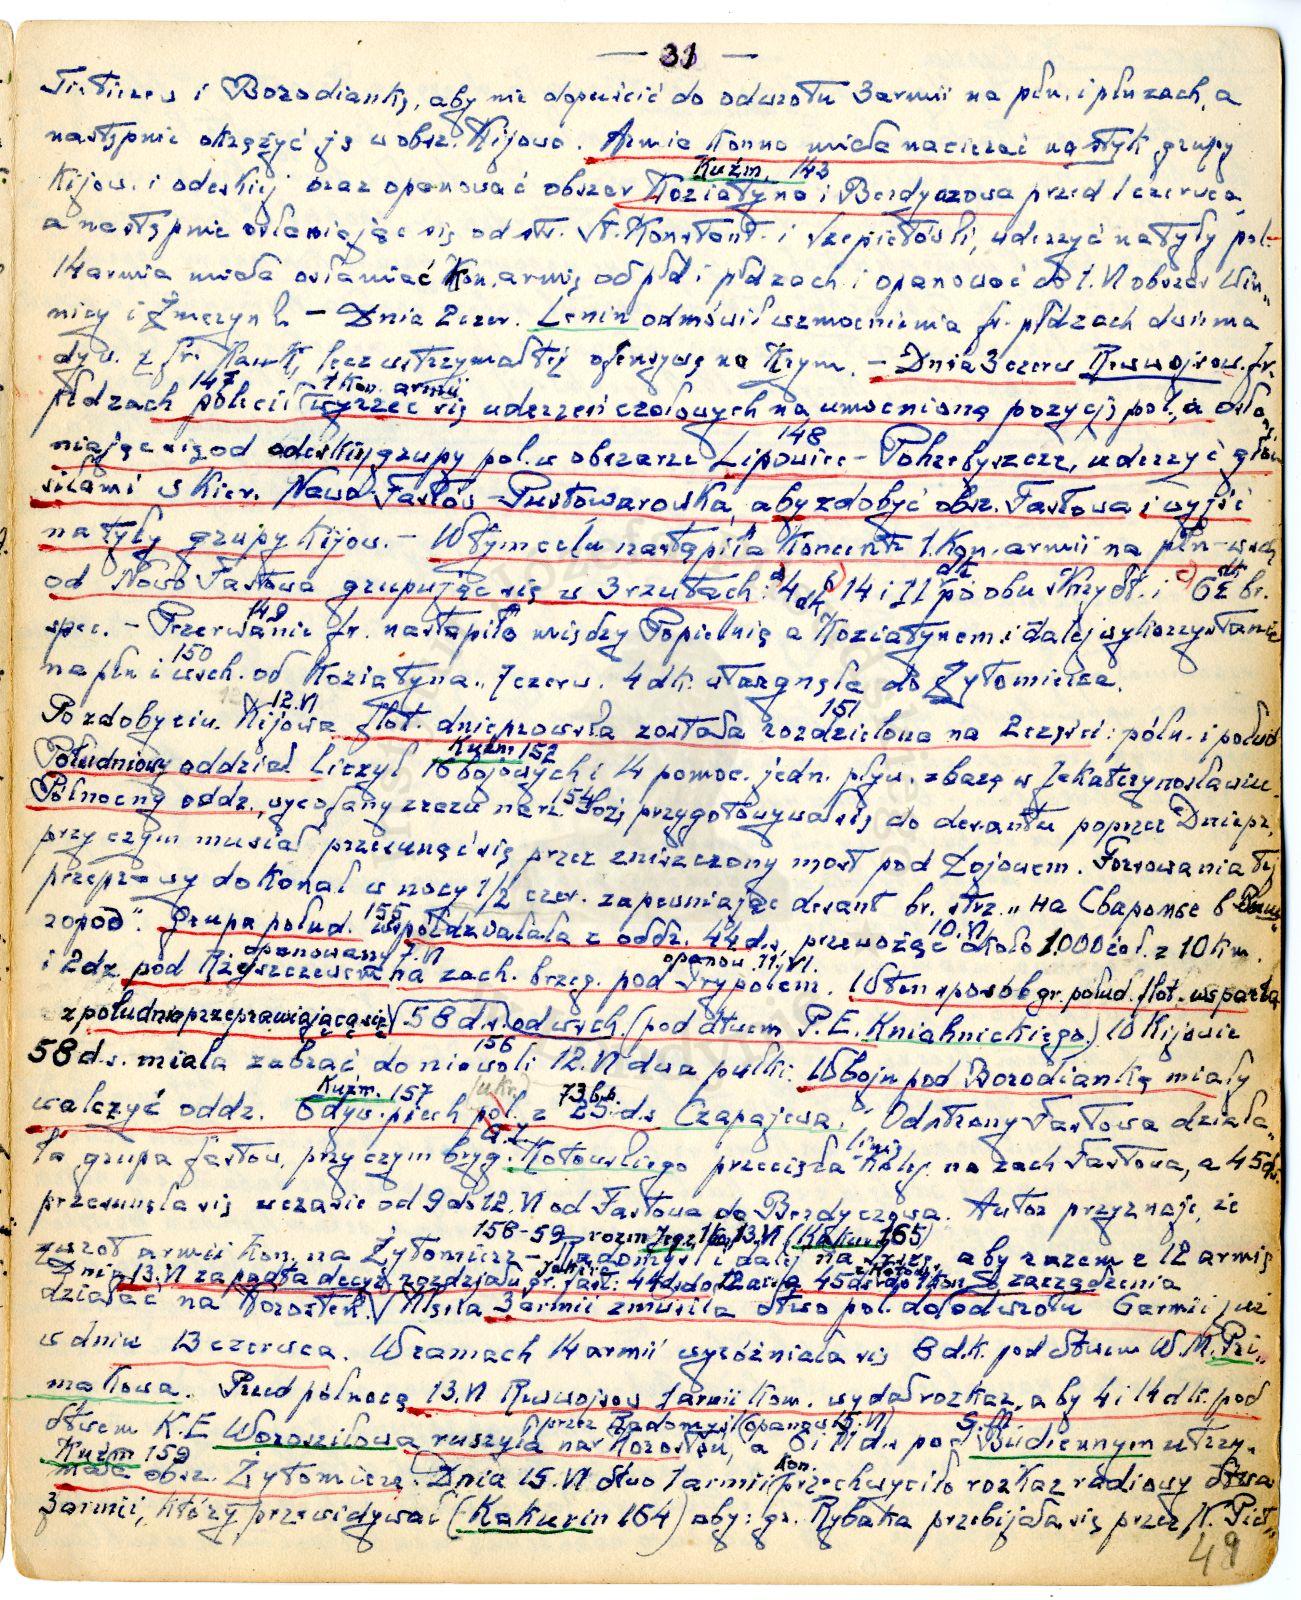 — 31 —
i Borodianką, aby nie dopuścić do odwrotu 3 armii na płn. i płnzach, a
następnie okrążyć ją w obsz. Kijowa. Armia Konna miała nacierać na styk grupy
Kuźm. 143
Kijow. i odeskiej oraz opanować obszar Koziatyna i Berdyczowa przed 1 czerwca,
a następnie osłaniając się od str. St. Konstant. i Szepietówki, uderzyć na tyły pol.
14 armia miała osłaniać Kon. armię od płd i płdzach i opanować do 1.VI obszar Win„
nicy i Żmerynk – Dnia 2 czer. Lenin odmówił wzmocnienia fr. płdzach dwiema
dyw. z fr. Kauk, lecz wstrzymał tej ofensywę na Krym. – Dnia 3 czerw Rewwojsow. fr.
147 1 Kon. armii
płdzach polecił wyrzec się uderzeń czołowych na umocnioną pozycję pol., a osła„
148
niając się od odeskiej grupy pol. w obszarze Lipowiec – Pohrebyszcze, uderzyć głów
siłami w kier. Nowo Fastów – Pustowarowka, aby zdobyć obsz. Fastowa i wyjść
na tyły grupy Kijow. – W tym celu nastąpiła koncentr 1. Kon. armii na płn-wsch
od Nowo Fastowa grupując się w 3 rzutach: a) 4 dk b) 14 i 11 dk po obu skrzydł. i c) 6 dk i br.
spec. – Przerwanie fr. nastąpiło między Popielnią a Koziatynem i dalej wykorzystanie
149
150
na płn i wsch. od Koziatyna. 7 czerw. 4 dk. wtargnęła do Żytomierza.
12.VI 151
Po zdobyciu Kijowa flot. dnieprowska została rozdzielona na 2 części: półn. i połud
Kuźm 152
Południowy oddział liczył 16 bojowych i 14 pomoc. jedn. pływ. z bazą w Jekaterynosławiu.
154
Północny oddz., wycofany zrazu na rz. Soż, przygotowywał się do desantu poprzez Dniepr,
przy czym musiał przesunąć się przez zniszczony most pod Łojowem. Forsowania tej
przeprawy dokonał w nocy 1/2 czer. zapewniając desant br. strz.
155 10.VI
Grupa połud. współdziałała z oddz. 44 d.s, przewożąc około 1000 żoł. z 10 km.
opanowany 7.VI opanow. 11.VI.
i 2 dz. pod Rżyszczewem na zach. brzeg. pod Trypolem. W ten sposób gr. połud. flot. wsparła
z południa przeprawiającą się 58 d.s. od wsch. (pod dtwem P. E. Kniahnickiego.) W Kijowie
156
58 d.s. miała zabrać do niewoli 12.VI dwa pułki. W boju pod Borodianką miały
Kuźm. 157 (ukr.) 73 b.s.
walczyć oddz. 6 dyw. piech pol. z 25 d.s Czapajewa. Od strony Fastowa działa„
ła grupa fastow. przy czym bryg. Kotowskiego przecięła linię kolej. na zach Fastowa, a 45 d.s.
przesunęła się w czasie od 9 do 12.VI od Fastowa do Berdyczowa. Autor przyznaje, że
158-59 rozm Jegr. 13.VI (Kakur. 165)
zwrot armii Kon. na Żytomierz – Radomyśl i dalej na aby razem z 12 armią
Dnia 13.VI zapadła decyz. rozdziału gr. fast: 44 ds do 12 arm a 45 ds do 1 kon
działać na Korosteń. 3 armii zmusiła dtwo pol. do odwrotu 6 armii już
w dniu 13 czerwca. W ramach 14 armii wyróżniała się 8 d.k. pod dtwem W. M. Pri„
makowa. Przed północą 13.VI Rewwojsow 1 armii kon. wydał rozkaz, aby 4 i 14 dk. pod
przez Radomyśl (opanow 15.VI)
dtwem K. E Woroszilowa ruszyła na Korosteń, a 6 i 11 d.s pod S. M Budiennym utrzy„
Kuźm 159
mała obsz. Żytomierza. Dnia 15.VI dtwo 1 armii kon. przechwyciło rozkaz radiowy dtwa
3 armii, który przewidywał (Kakurin 164) aby: gr. Rybaka przebijała się przez
49